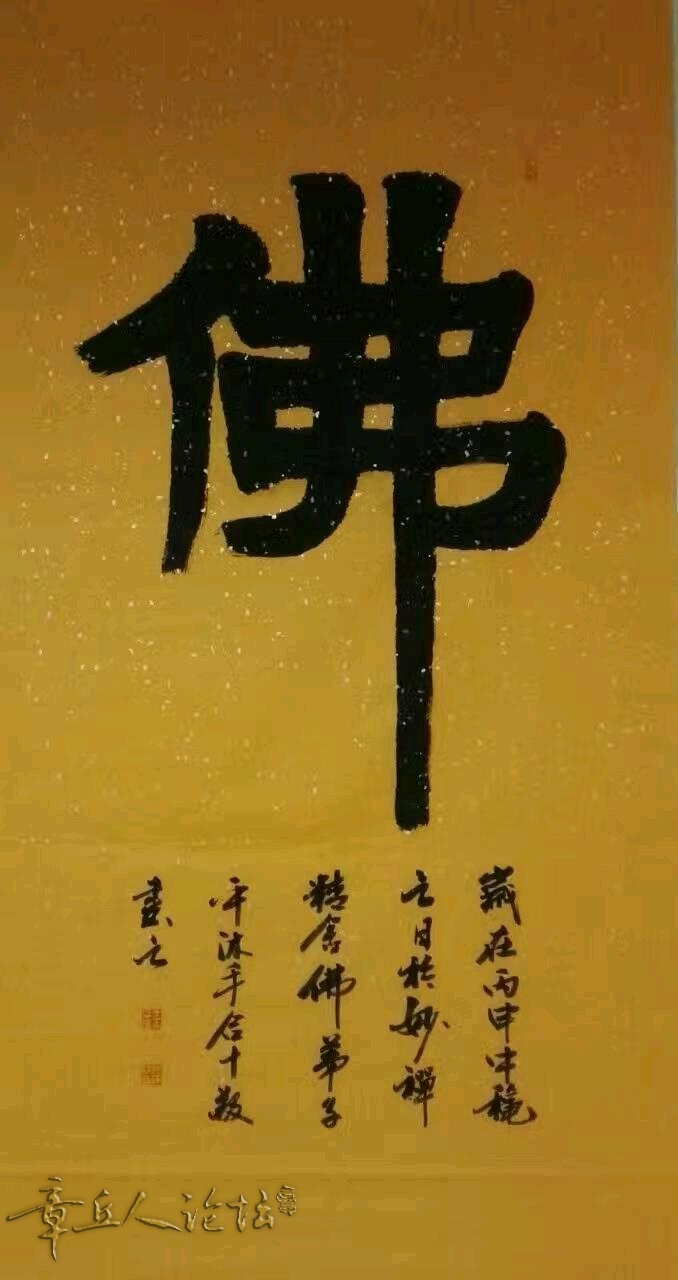 佛
歲在丙申中秋
之日於妙禪
精舍佛弟子
平沐手合十敬
書之
章丘人论坛